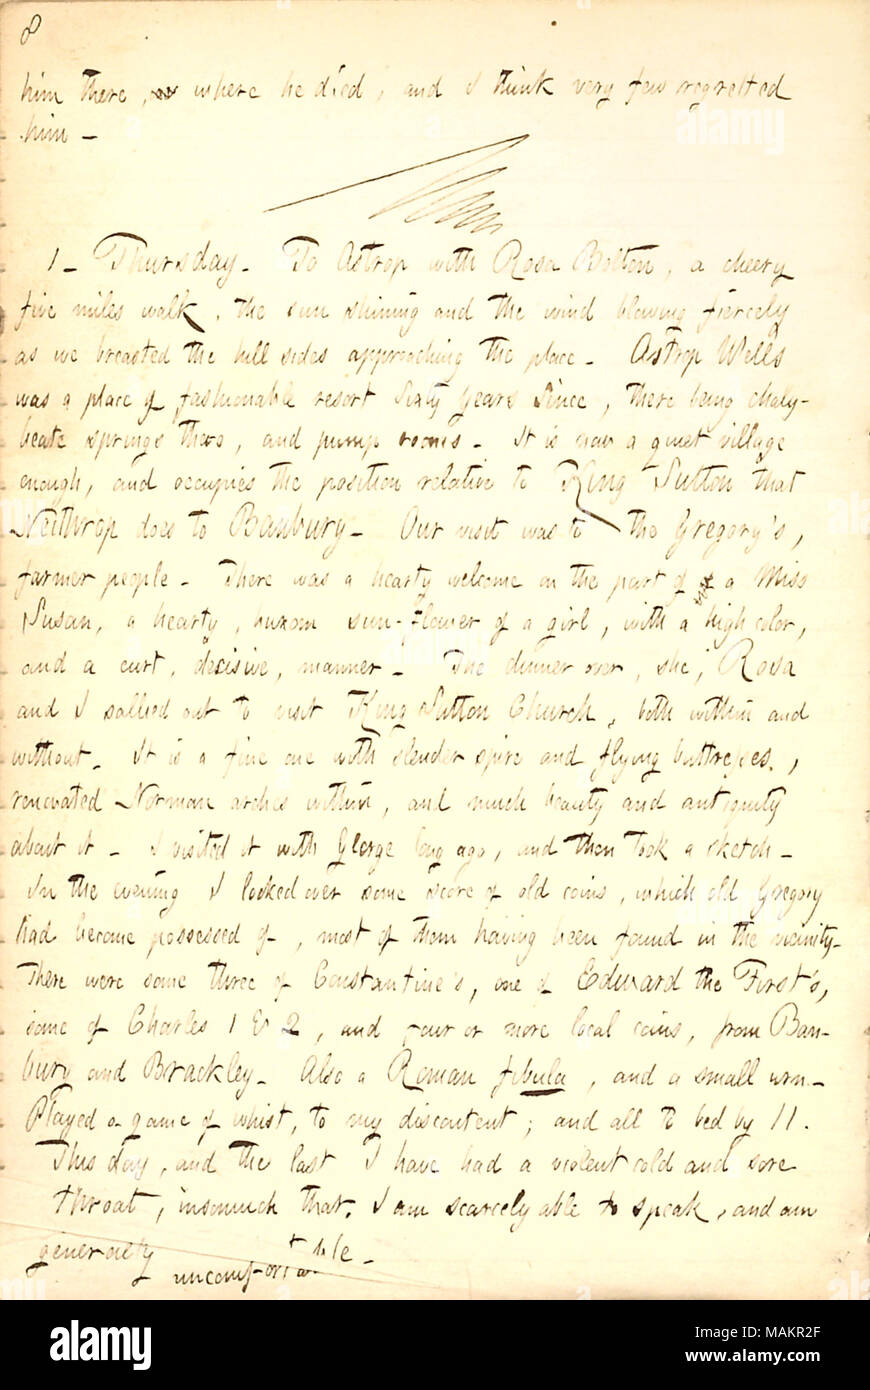 8
him there, where he died, and I think very few regretted
him —
1 — Thursday. To Astrop with Rosa Bolton, a cheery
five miles walk, the sun shining and the wind blowing fiercely
as we breasted the hill sides approaching the place. Astrop Wells
was a place of fashionable resort Sixty Years Since, there being chaly-
beate springs there, and pump rooms. It is now a quiet village
enough, and occupies the position relative to King Sutton that
Neithrop does to Banbury. Our visit was to the Gregory's,
farmer people. There was a hearty welcome on the part of a Miss
Susan, a hearty, buxom sun-flower of a girl, with a high color,
and a curt, decisive, manner. The dinner over, she, Rosa
and I sallied out to visit King Sutton Church, both within and
without. It is a fine one with slender spire and flying buttresses,
renovated Norman arches within, and much beauty and antiquity
about it. I visited it with George long ago, and then took a sketch.
In the evening I looked over some score of old coins, which old Gregory
had become possessed of, most of them having been found in the vicinity.
There were some three of Constantine's, one of Edward the First's,
some of Charles 1 & 2, and four or more local coins, from Ban-
bury and Brackley. Also a Roman fibula, and a small urn.
Played a game of whist, to my discontent; and all to bed by 11.
This day, and the last I have had a violent cold and sore
throat, insomuch that I am scarcely able to speak, and am
generally uncomfortable.
alamy
Image ID: MAKR2F
www.alamy.com